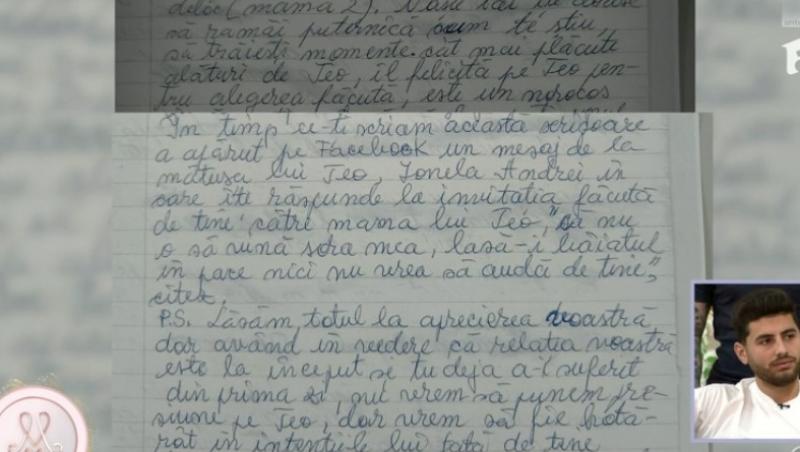 deloc (mama 2).
să ramăi puternică cum te știu,
să trăiești momente cât mai plăcute
alături de Teo, îl felicită pe Teo pen-
tru alegerea făcută, este un norocos
În timp ce-ti scriam această scrisoare
a apărut pe Facebook un mesaj de la
mătușa lui Teo, Ionela Andrei în
care îti răspunde la invitatia făcută
de tine către mama lui Teo, "să nu
o să vină sora mea, lasă-i băiatul
în pace nici nu vrea să audă de tine",
citez.
P.S. Lăsăm totul la aprecierea voastră
dar având în vedere că relatia voastră
este la început se tu deja a-i suferit
din prima zi, nu vrem să punem pre-
siune pe Teo, dar vrem să fie hotă-
rât în intentiile lui fată de tine